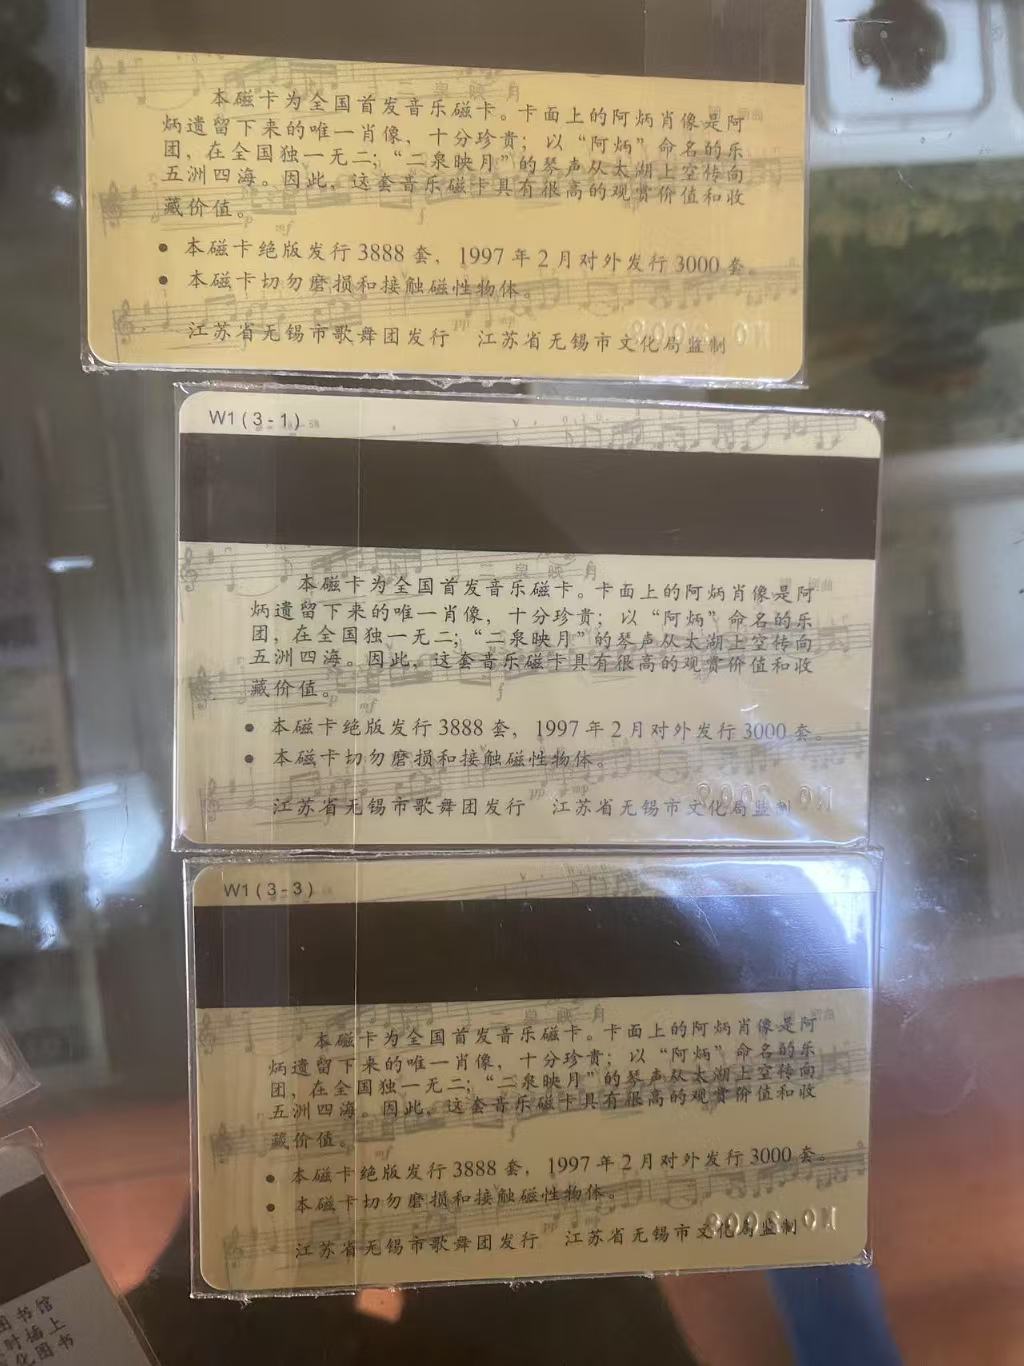 二泉映月
本磁卡为全国首发音乐磁卡。卡面上的阿炳肖像是阿
炳遗留下来的唯一肖像，十分珍贵；以“阿炳”命名的乐
团，在全国独一无二；“二泉映月”的琴声从太湖上空传向
五洲四海。因此，这套音乐磁卡具有很高的观赏价值和收
藏价值。
● 本磁卡绝版发行3888套，1997年2月对外发行3000套。
● 本磁卡切勿磨损和接触磁性物体。
江苏省无锡市歌舞团发行 江苏省无锡市文化局监制
W1(3-1)
二泉映月
本磁卡为全国首发音乐磁卡。卡面上的阿炳肖像是阿
炳遗留下来的唯一肖像，十分珍贵；以“阿炳”命名的乐
团，在全国独一无二；“二泉映月”的琴声从太湖上空传向
五洲四海。因此，这套音乐磁卡具有很高的观赏价值和收
藏价值。
● 本磁卡绝版发行3888套，1997年2月对外发行3000套。
● 本磁卡切勿磨损和接触磁性物体。
江苏省无锡市歌舞团发行 江苏省无锡市文化局监制
W1(3-3)
二泉映月
本磁卡为全国首发音乐磁卡。卡面上的阿炳肖像是阿
炳遗留下来的唯一肖像，十分珍贵；以“阿炳”命名的乐
团，在全国独一无二；“二泉映月”的琴声从太湖上空传向
五洲四海。因此，这套音乐磁卡具有很高的观赏价值和收
藏价值。
● 本磁卡绝版发行3888套，1997年2月对外发行3000套。
● 本磁卡切勿磨损和接触磁性物体。
江苏省无锡市歌舞团发行 江苏省无锡市文化局监制
图书馆
时插上
化图书